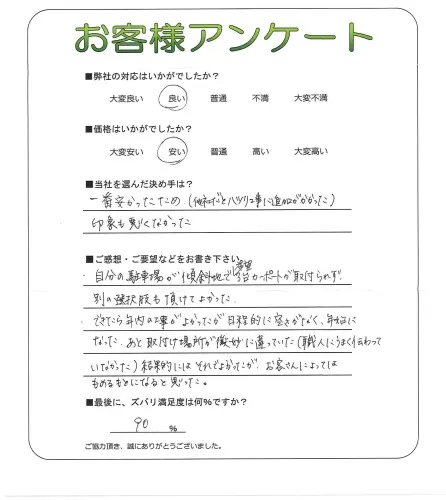 お客様アンケート
■弊社の対応はいかがでしたか?
大変良い 良い 普通 不満 大変不満
■価格はいかがでしたか?
大変安い 安い 普通 高い 大変高い
■当社を選んだ決め手は?
一番安かったため(他社だとハツリ工事に追加がかかった)
印象も悪くなかった
■ご感想・ご要望などをお書き下さい
・自分の駐車場が傾斜地で希望カーポートが取付られず
別の選択肢も頂けてよかった。
・できたら年内の工事がよかったが日程的に空きがなく、年始に
なった。あと取付け場所が微妙に違っていた(職人にうまく伝わって
いなかった)結果的にはそれでよかったが、お客さんによっては
もめるもとになると思った。
■最後に、ズバリ満足度は何%ですか?
90 %
ご協力頂き、誠にありがとうございました。